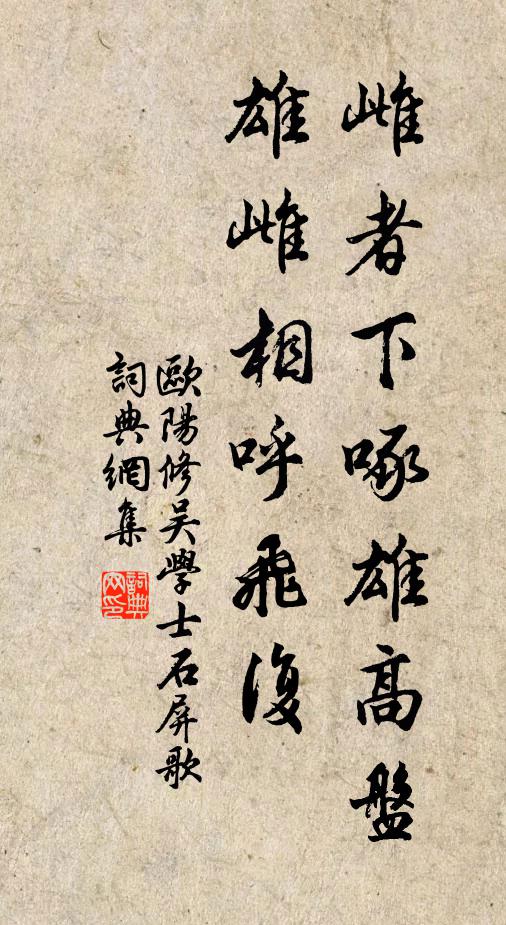 雌者下啄雄高盤
雄雌相呼飛復
歐陽修吳學士石屏歌
詞典網集
詞典
网印